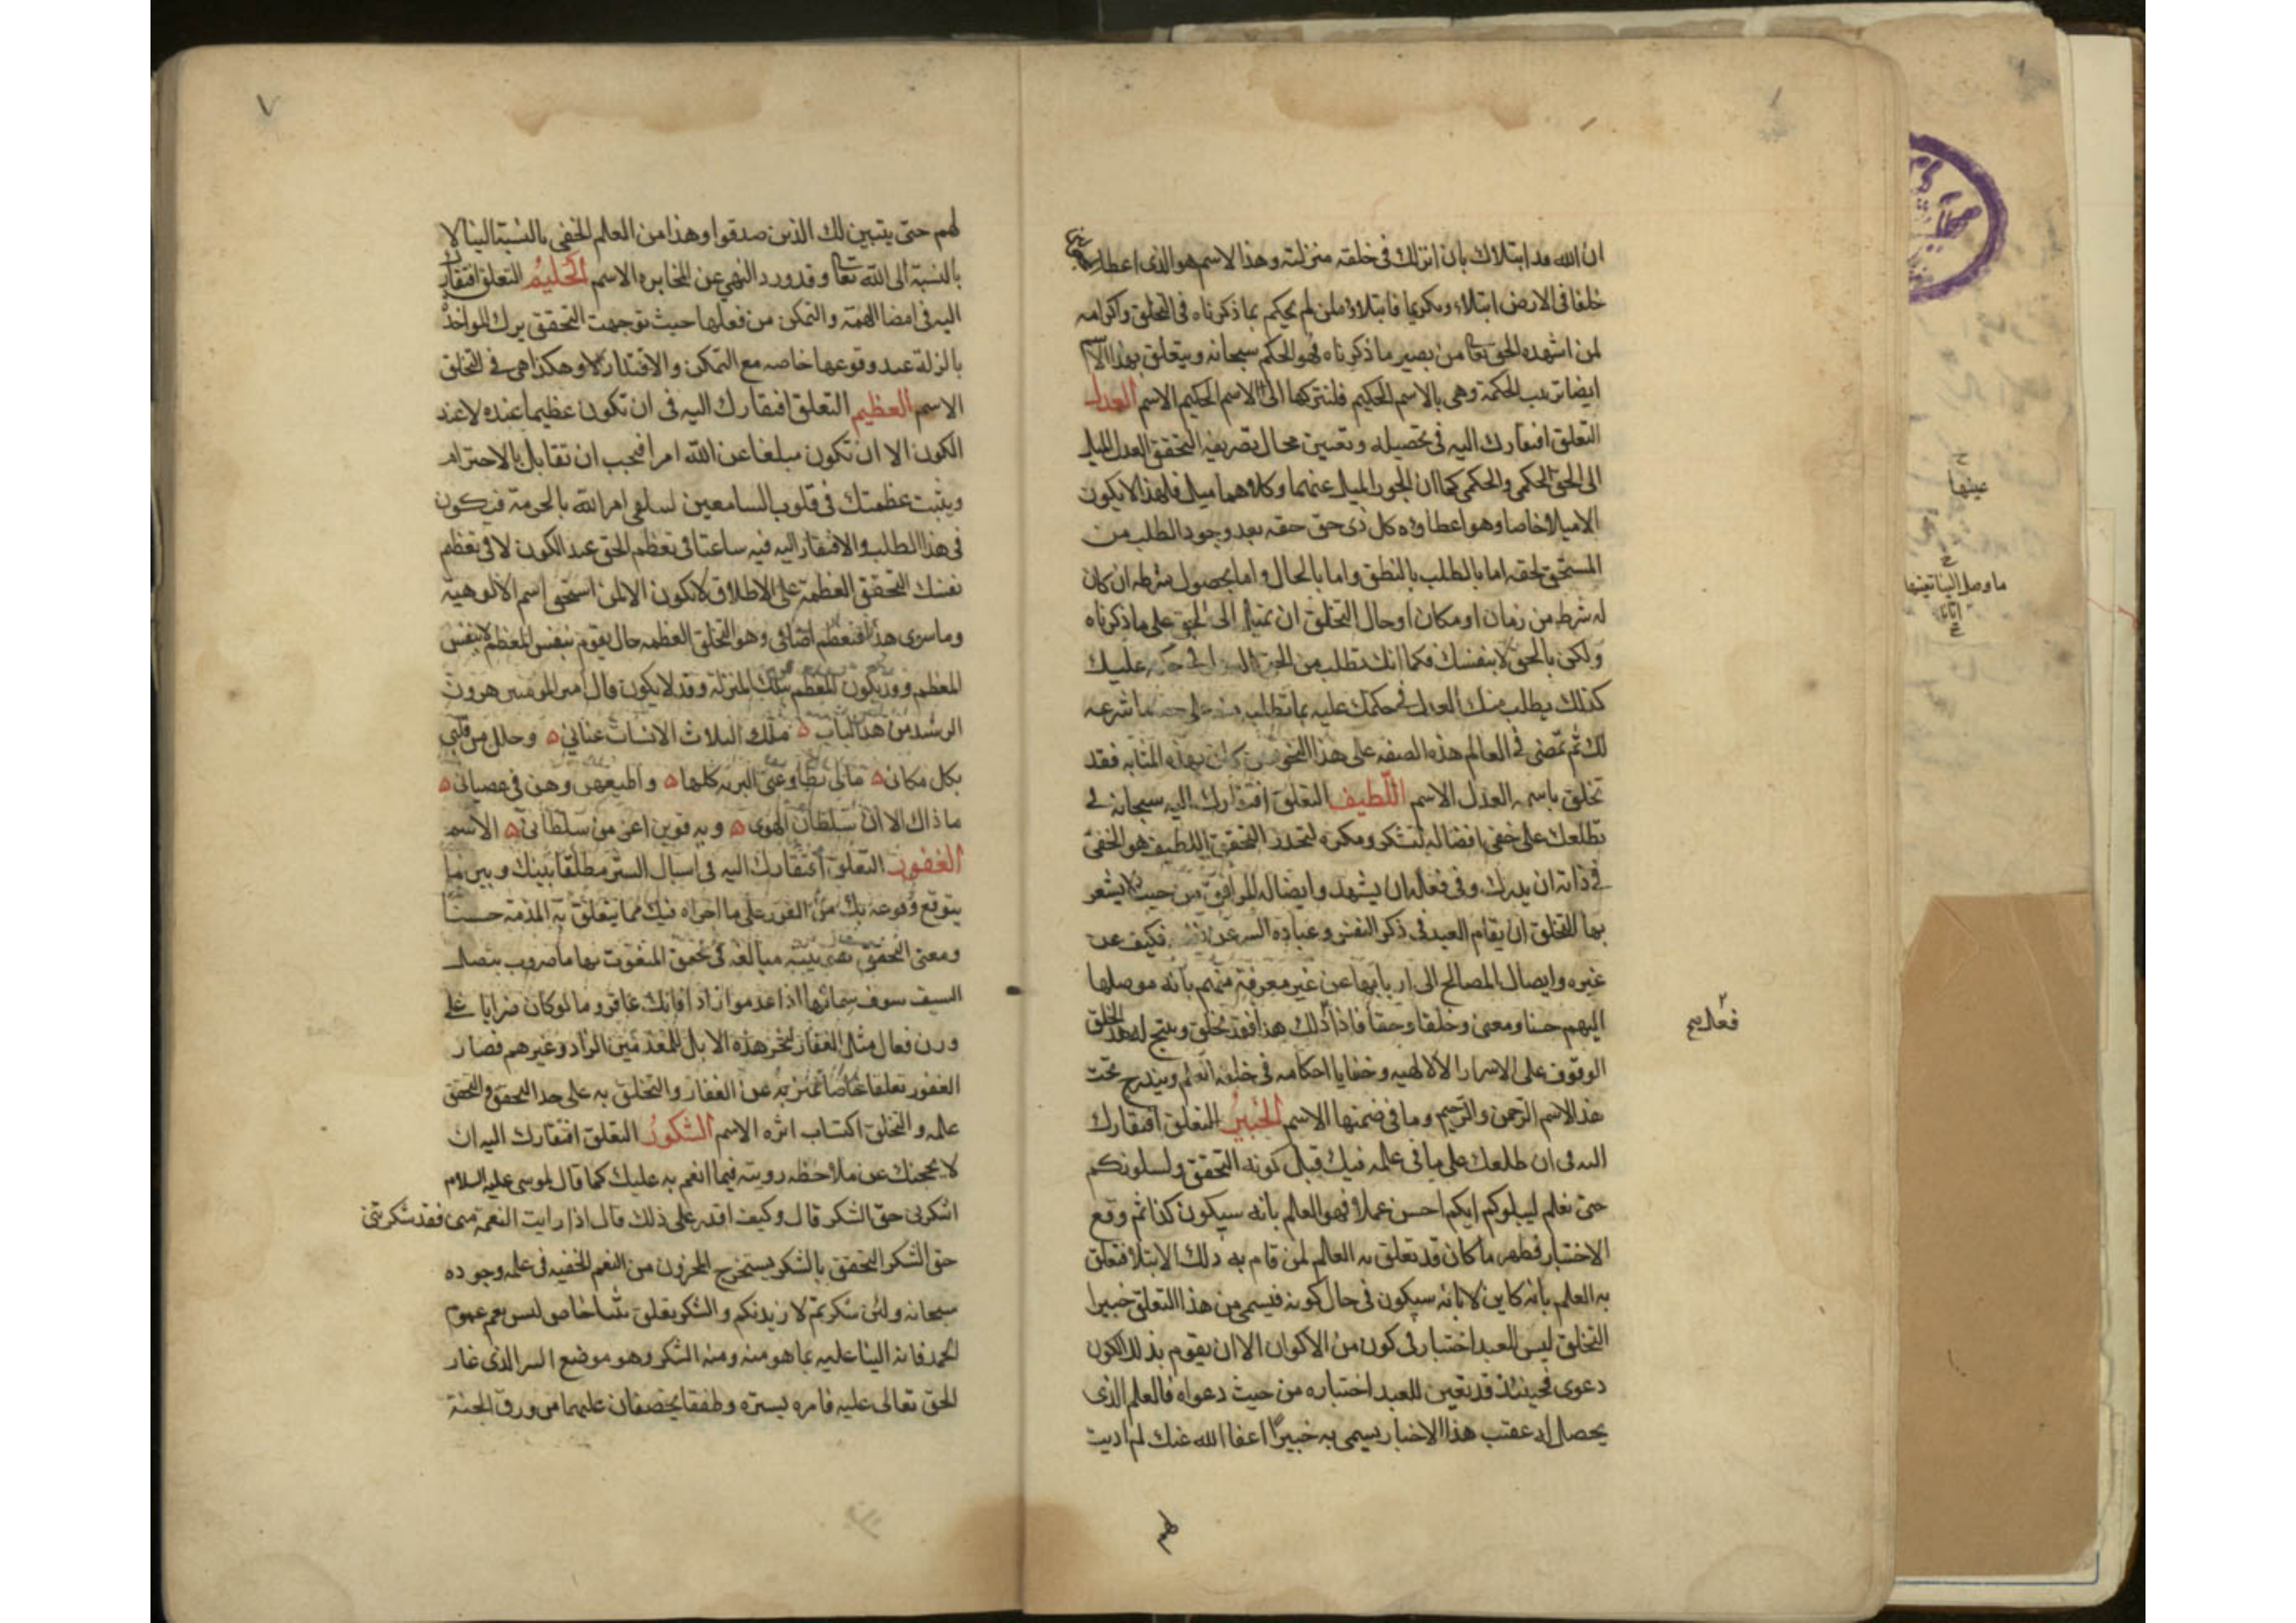 ان الله قد ابتلاك بان انزلك فى خلقه منزلته وهذا الاسم هو الذى اعطا
خلفا فى الارض ابتلاء وتكريما فابتلاؤه لمن لم يحكم بما ذكرناه فى التخلق واكرامه
لمن اشهده الحق تعا من بصير ما ذكرناه فهو الحكم سبحانه ويتعلق بهذا الاسم
ايضا ترتيب الحكمة وهى بالاسم الحكيم فلنتركها الى الاسم الحكيم الاسم العدل
التعلق افتقارك اليه فى تحصيله وتعيين محال تصريفه التحقق العدل الميل
الى الحق الحكمى والحكمى كما ان الجور الميل عنهما وكلاهما ميل فلهذا لا يكون
الا ميلا خاصا وهو اعطاؤه كل ذى حق حقه بعد وجود الطلب من
المستحق لحقه اما بالطلب بالنطق واما بالحال واما بحصول شرطه ان كان
له شرط من زمان او مكان او حال التخلق ان تميل الى الحق على ما ذكرناه
ولكن بالحق لا بنفسك فكما انك تطلب من الحق عليك
كذلك يطلب منك العدل فى حكمك عليه بما تطلب ما شرعه
لك ثم تمضى فى العالم هذه الصفه على هذا النحو بهذه المثابه فقد
تخلق باسمه العدل الاسم اللطيف التعلق افتقارك اليه سبحانه فى
تطلعك على خفى افضاله لتشكر ومكره لتحذر التحقق اللطيف هو الخفى
فى ذاته ان يدرك وفى فعله ان يشهد وايصاله المرافق من حيث لا يشعر
بها التخلق ان يقام العبد فى ذكر النفس وعباده السر عن فكيف عن
غيره وايصال المصالح الى اربابها عن غير معرفة منهم بانه موصلها
اليهم حسا ومعنى وخلقا وحقا فاذا ذلك هذا فقد تخلق وينتج له هذا الخلق
الوقوف على الاسرار الالهيه وخفايا احكامه فى خلقه العلم ويندرج تحت
هذا الاسم الرحمن والرحيم وما فى ضمنها الاسم الخبير التعلق افتقارك
اليه فى ان طلعك على ما فى علمه فيك قبل كونه التحقق ولنبلونكم
حتى نعلم ليبلوكم ايكم احسن عملا فهو العالم بانه سيكون كذا ثم وقع
الاختبار فظهر ما كان قد تعلق به العالم لمن قام به ذلك الابتلا فتعلق
به العلم بانه كاين لا بانه سيكون فى حال كونه فيسمى من هذا التعلق خبيرا
التخلق ليس للعبد اختبار فى كون من الاكوان الا ان يقوم بذلك الكون
دعوى فحينئذ قد تعين للعبد اختباره من حيث دعواه فالعلم الذى
يحصل له عقب هذا الاختبار يسمى به خبيرا عفا الله عنك لم اذنت
لهم
فعاله صح
عينها
ما وصل الينا تعينها
لهم حتى يتبين لك الذين صدقوا وهذا من العلم الخفى بالنسبة الينا لا
بالنسبة الى الله تعا وقد ورد النهى عن المخابره الاسم الحليم التعلق افتقارك
اليه فى امضا الهمة والتمكن من فعلها حيث توجهت التحقق ترك المواخذة
بالزلة عند وقوعها خاصه مع التمكن والاقتدار لا وهكذا هى فى التخلق
الاسم العظيم التعلق افتقارك اليه فى ان تكون عظيما عنده لا عند
الكون الا ان تكون مبلغا عن الله امرا فتحب ان تقابل بالاحترام
ويثبت عظمتك فى قلوب السامعين لتتلقى امر الله بالحرمة فيكون
فى هذا الطلب والافتقار اليه فيه ساعتا فى تعظم الحق عند الكون لا فى تعظم
نفسك التحقق العظمة على الاطلاق لا تكون الا لمن استحق اسم الالوهية
وما سوى هذا فتعظم اضافى وهو التخلق العظمه حال يقوم بنفس المعظم لا بنفس
المعظم وقد يكون المعظم بتلك المنزلة وقد لا يكون قال امير المومنين هرون
الرشيد من هذا الباب ملك الثلاث الانسات عنانى وحللن من قلبى
بكل مكان مالى تطاوعنى البريه كلها واطيعهن وهن فى عصيانى
ما ذاك الا ان سلطان الهوى وبه قوين اعز من سلطانى الاسم
الغفور التعلق افتقارك اليه فى اسبال الستر مطلقا بينك وبين ما
يتوقع وقوعه بك من الضرر على ما اجراه فيك مما يتعلق به المذمة حسا
ومعنى التحقق مبالغه فى تحقق المنعوت بها ما ضروب بنصل
السيف سوف سمانها اذا عدموا زادا فانك عاقر وما لو كان ضرابا على
وزن فعال مثل الغفار لنحر هذه الابل للمعدمين الزاد وغيرهم فصار
الغفور تعلقا خاصا تميز به عن الغفار والتخلق به على حد التحقق والتحقق
علمه والتخلق اكتساب اثره الاسم الشكور التعلق افتقارك اليه ان
لا يحجبك عن ملاحظة رويته فيما انعم به عليك كما قال لموسى عليه السلام
اشكرنى حق الشكر قال وكيف اقدر على ذلك قال اذا رايت النعمة منى فقد شكرتنى
حق الشكر التحقق بالشكر يستخرج المخزون من النعم الخفيه فى علمه وجوده
سبحانه ولئن شكرتم لازيدنكم والشكر تعلق بثنا خاص ليس يعم عموم
الحمد فانه الثنا عليه بما هو منه ومنه الشكر وهو موضع السر الذى غار
الحق تعالى عليه فامره يستره وطفقا يخصفان عليهما من ورق الجنة